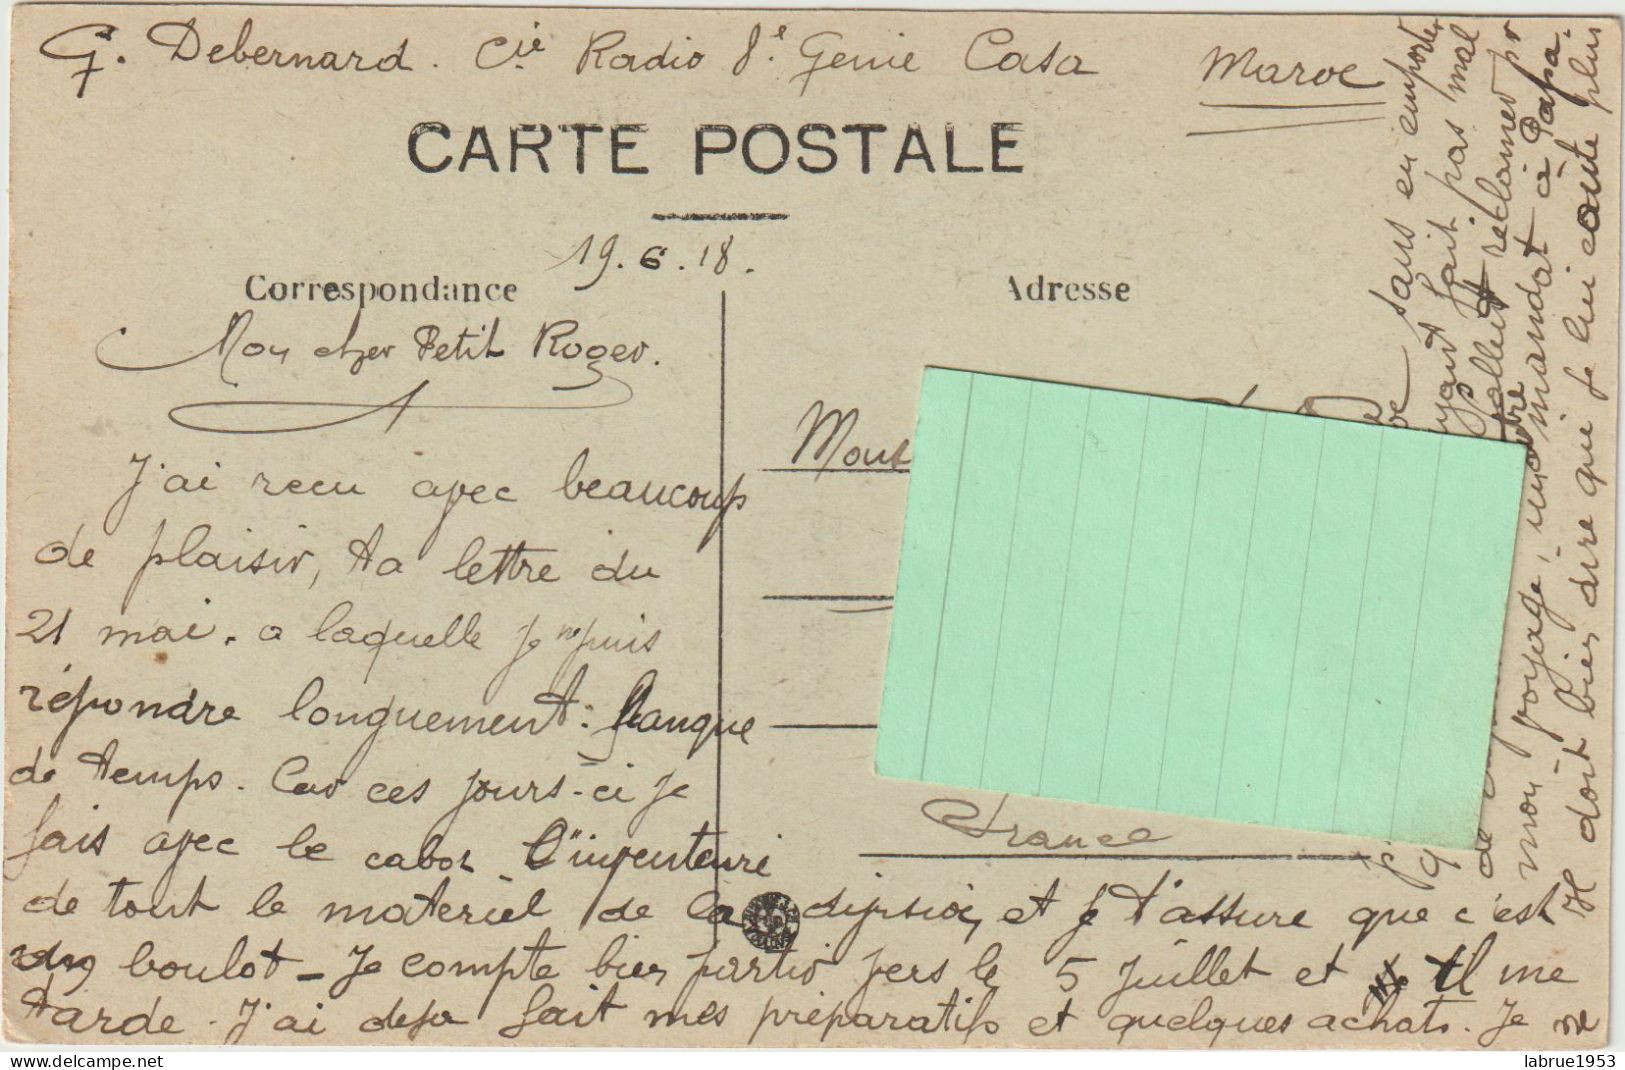 G. Debernard. Cie Radio 8e Genie Casa Maroc
CARTE POSTALE
19.6.18.
Correspondance
Adresse
Mon cher Petit Roger.
J'ai recu avec beaucoup
de plaisir, ta lettre du
21 mai. a laquelle je ne puis
répondre longuement: Manque
de temps. Car ces jours-ci je
fais avec le cabot l'inventaire
de tout le materiel de la division, et je t'assure que c'est
du boulot - Je compte bien partir vers le 5 Juillet et il me
tarde. J'ai deja fait mes préparatifs et quelques achats. Je ne
Mont
France
sans en emporter
yant fait pas mal
fallut reclamer pr
mon voyage, un mandat à Papa.
Il doit bien dire que je lui coute plus
labrue1953